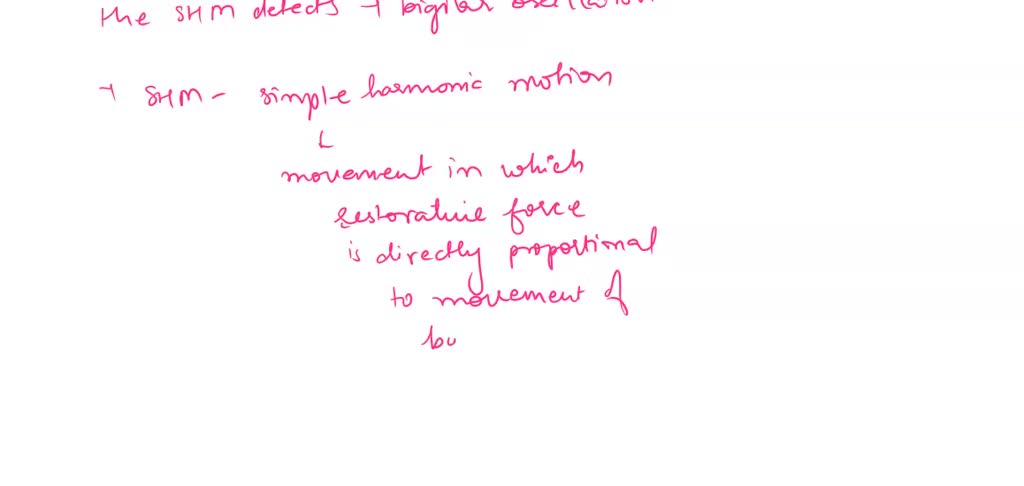 the SHM detects → digital oscillation
→ SHM - simple harmonic motion
movement in which
restorative force
is directly proportional
to movement of
bo